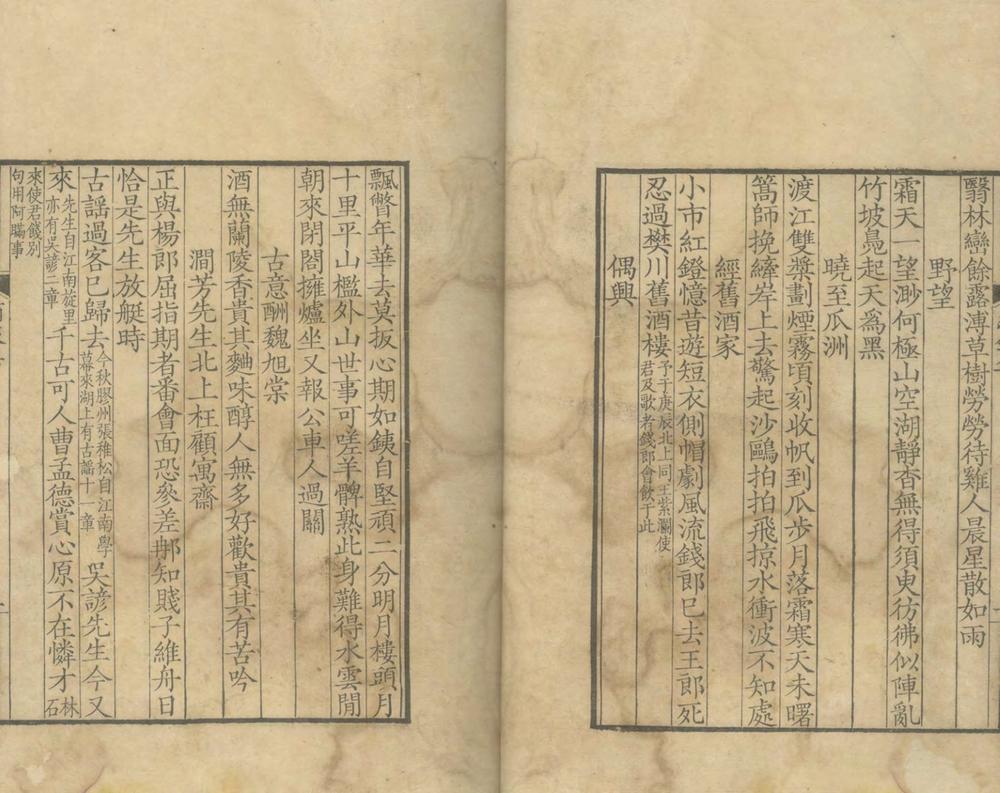 翳林巒餘露漙草樹勞勞待雞人晨星散如雨
野望
霜天一望渺何極山空湖靜杳無得須臾彷彿似陣亂
竹坡鳧起天爲黑
曉至瓜洲
渡江雙槳劃煙霧頃刻收帆到瓜步月落霜寒天未曙
篙師挽䌫岸上去驚起沙鷗拍拍飛掠水衝波不知處
經舊酒家
小市紅鐙憶昔遊短衣側帽劇風流錢郎已去王郎死
忍過樊川舊酒樓予于庚辰北上同王紫瀾使
君及歌者錢郎會飲于此
偶興
飄瞥年華去莫扳心期如鐵自堅頑二分明月樓頭月
十里平山檻外山世事可嗟羊髀熟此身難得水雲閒
朝來閉閤擁爐坐又報公車人過關
古意酬魏旭棠
酒無蘭陵香貴其麯味醇人無多好歡貴其有苦吟
澗芳先生北上枉顧寓齋
正與楊郎屈指期者番會面恐參差那知賤子維舟日
恰是先生放艇時
古謡過客已歸去今秋膠州張稚松自江南學
幕來湖上有古謡十一章
吳諺先生今又
來先生自江南旋里
亦有吳諺二章
千古可人曹孟德賞心原不在憐才林
石
來使君餞別
句用阿瞞事